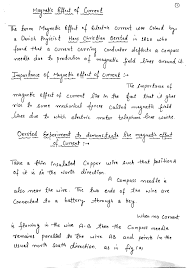 Magnetic Effect of Current
The term Magnetic Effect of Electric current was coined by
a Danish Physicist Hans Christian Oersted in 1820 who
found that a current carrying conductor deflects a compass
needle due to production of magnetic field lines around it.
Importance of Magnetic effect of Current :-
The importance
of magnetic effect of current lies in the fact that it give
rise to some mechanical forces called magnetic field
lines due to which electric motor telephone line works
Oersted Experiment to demonstrate the magnetic effect
of Current :-
Take a thin insulated Copper wire such that
of it is in the north direction
A Compass needle is
also near the wire. The two ends of the wire are
connected to a battery through a key.
When no current
is flowing in the wire AB then the Compass needle
remains parallel to the wire AB and points in the
usual north south direction as in fig (a)